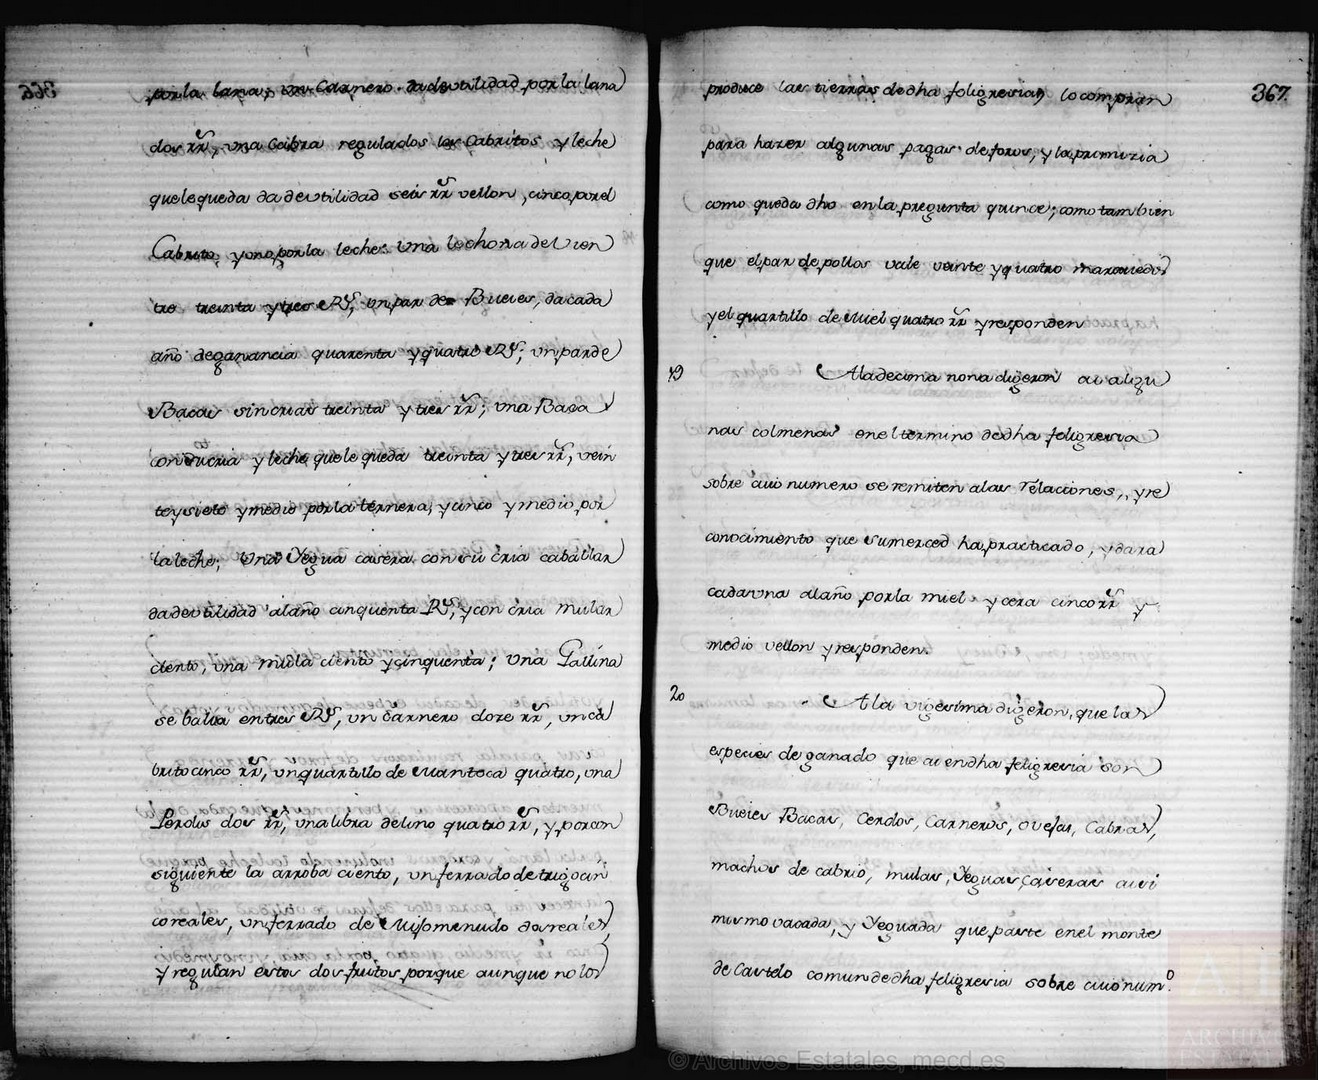 por la lana; un Carnero da de utilidad por la lana
dos rr.s, una Cabra regulados los Cabritos y leche
que le queda da de utilidad seis rr.s vellon, cinco por el
Cabrito, y uno por la leche: Una lechona de vien
tre treinta y tres R.s; un par de Bueies, da cada
año de ganancia quarenta y quatro R.s; un par de
Bacas sin crias treinta y tres rr.s; una Baca
con su cria y leche que le queda treinta y tres rr.s, vein
te y siete y medio por la ternera, y cinco y medio por
la leche; Una Yegua casera con su cria caballar
da de utilidad al año cinquenta R.s, y con cria mular
ciento, una mula ciento y cinquenta; una Gallina
se balua en tres R.s, un carnero doze rr.s, un ca
brito cinco rr.s, un quartillo de Manteca quatro, una
Perdiz dos rr.s, una libra de lino quatro rr.s, y por con
siguiente la arroba ciento, un ferrado de trigo cin
co reales, un ferrado de Mijomenudo dos reales,
y regulan estos dos frutos porque aunque no los
367.
produce las tierras de dha feligresia, lo compran
para hazer algunas pagas de foros, y la primizia
como queda dho en la pregunta quince; como tambien
que el par de pollos vale veinte y quatro maravedis
y el quartillo de Miel quatro rr.s y responden
19 A la decima nona digeron ai algu
nas colmenas en el termino de dha feligresia
sobre cuio numero se remiten a las relaciones, y re
conocimiento que Sumerced ha practicado, y dara
cada una al año por la miel y cera cinco rr.s y
medio vellon y responden.
20 A la vigesima digeron, que las
especies de ganado que ai en dha feligresia son
Bueies Bacas, Cerdos, Carneros, ovejas, Cabras,
machos de cabrio, mulas, Yeguas caseras asi
mismo vacada, y Yeguada que paste en el monte
de Castelo comun de dha feligresia sobre cuio num.o
© Archivos Estatales, mecd.es